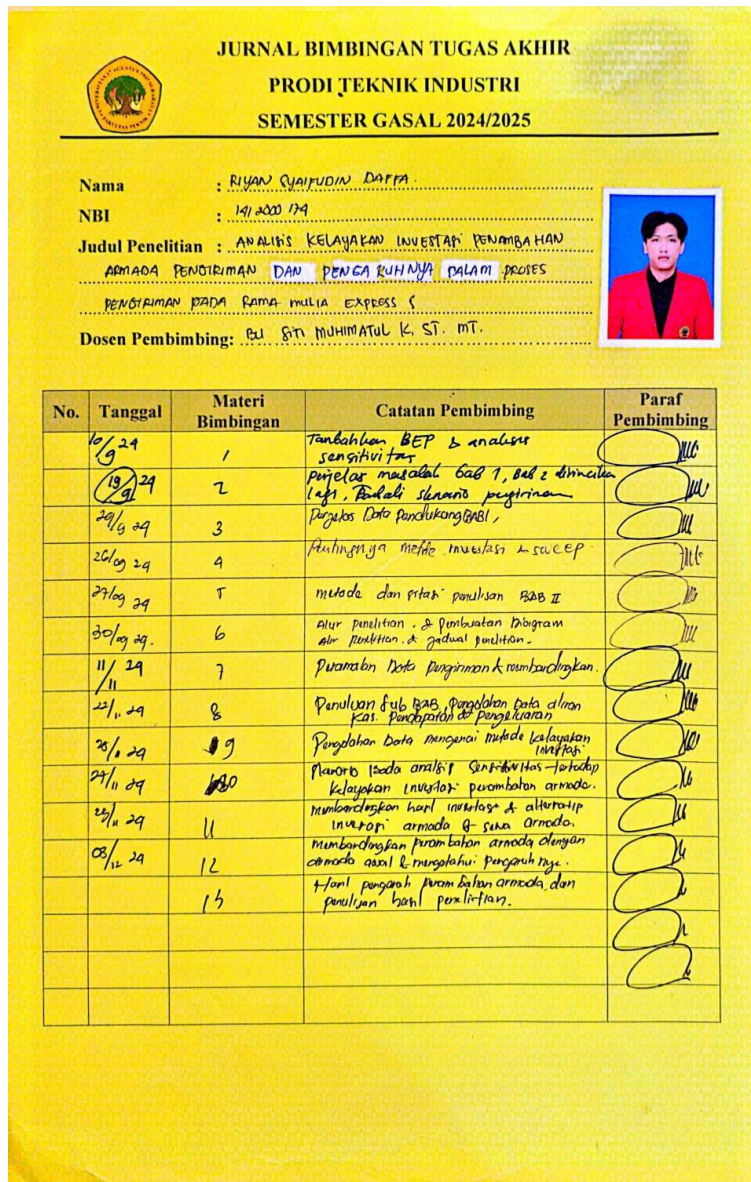 JURNAL BIMBINGAN TUGAS AKHIR
PRODI TEKNIK INDUSTRI
SEMESTER GASAL 2024/2025
Nama : RIYAN SYAIFUDIN DAFFA.
NBI : 1412000179
Judul Penelitian : ANALISIS KELAYAKAN INVESTASI PENAMBAHAN
ARMADA PENGIRIMAN DAN PENGARUHNYA DALAM PROSES
PENGIRIMAN PADA RAMA MULIA EXPRESS
Dosen Pembimbing: BU SITI MUHIMATUL K. ST. MT.
No. Tanggal Materi Bimbingan Catatan Pembimbing Paraf Pembimbing
10/9 24 1 Tambahkan BEP & analisis
sensitivitas
19/9 24 2 perjelas masalah bab 1, Bab 2
lagi, skenario pengiriman
/9 24 3 Perjelas Data Pendukung BAB I,
26/09 24 4 Pentingnya metode investasi
27/09 24 5 metode dan sitasi penulisan BAB II
30/09 24. 6 Alur penelitian, & Pembuatan Diagram
Alir penelitian, & jadwal penelitian.
11/11 24 7 Data pengiriman &
22/11 24 8 Sub BAB, Pengolahan Data aliran
Kas. Pendapatan & Pengeluaran
9 Pengolahan Data mengenai metode kelayakan
investasi
/11 24 10 pada analisis Sensitivitas terhadap
kelayakan investasi penambahan armada.
/11 24 11 membandingkan hasil investasi & alternatip
investasi armada & sewa armada.
03/12 24 12 membandingkan penambahan armada dengan
armada awal & mengetahui pengaruh nya.
13 Hasil pengaruh penambahan armada, dan
penulisan hasil penelitian.